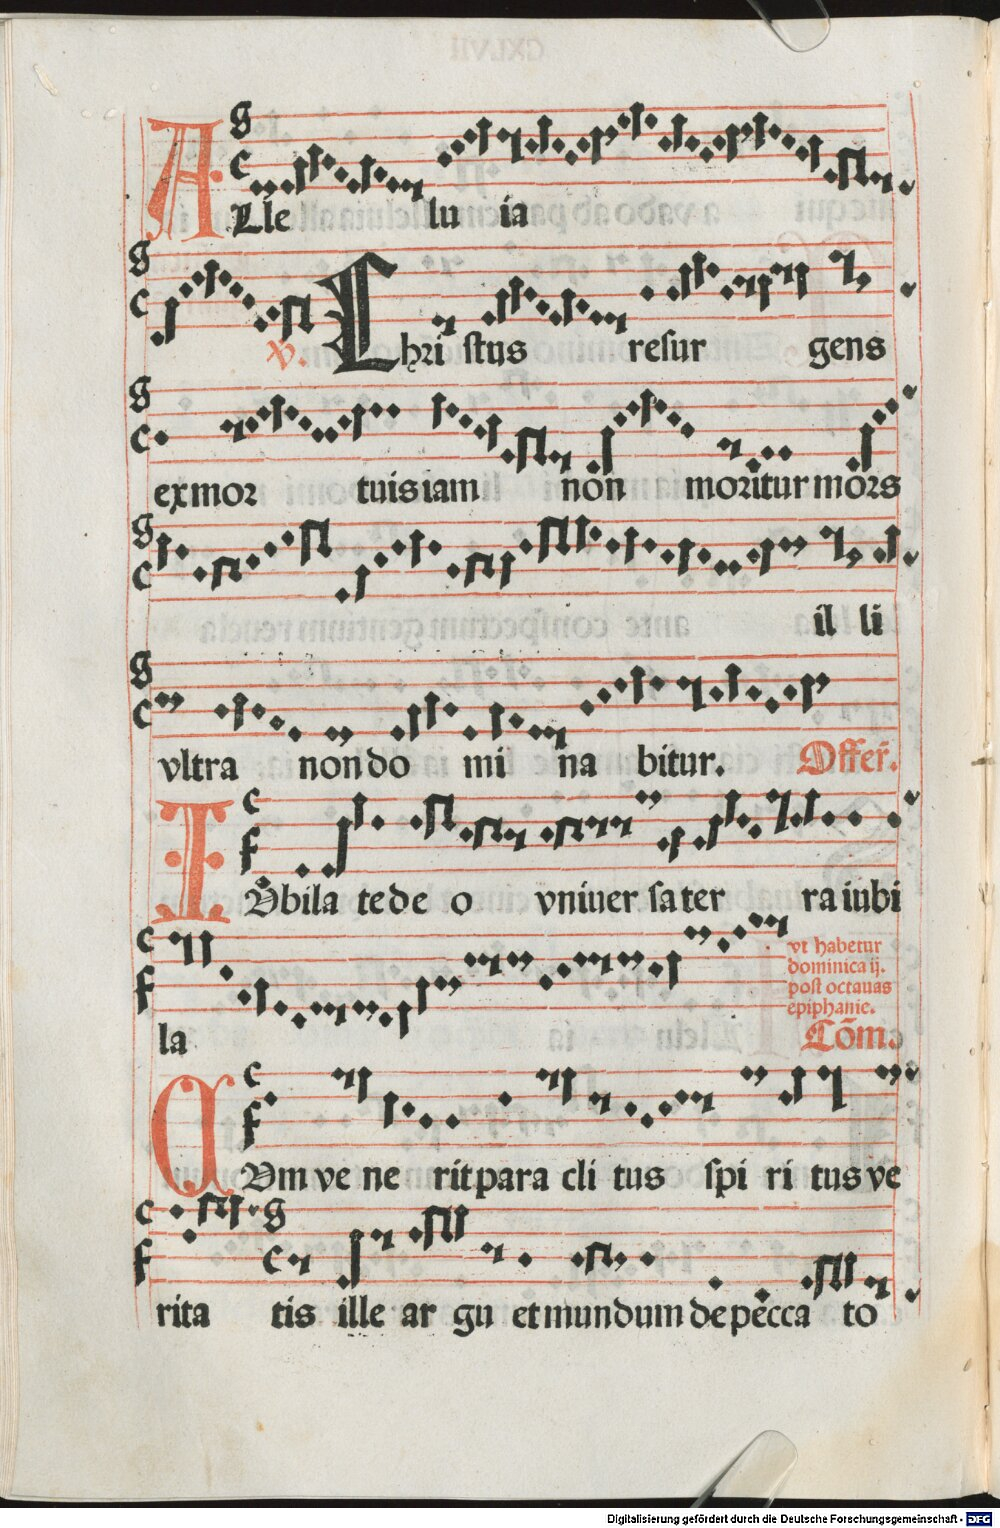 ALle lu ia
v. Chri stus resur gens
exmor tuisiam non moritur mors
il li
vltra non do mi na bitur. Offer̄.
IVbila tede o vniuer sa ter ra iubi
la
vt habetur
dominica ij.
post octauas
epiphanie.
Cōm.
CVm ve ne rit para cli tus spi ri tus ve
rita tis ille ar gu et mundum de pecca to
Digitalisierung gefördert durch die Deutsche Forschungsgemeinschaft - DFG